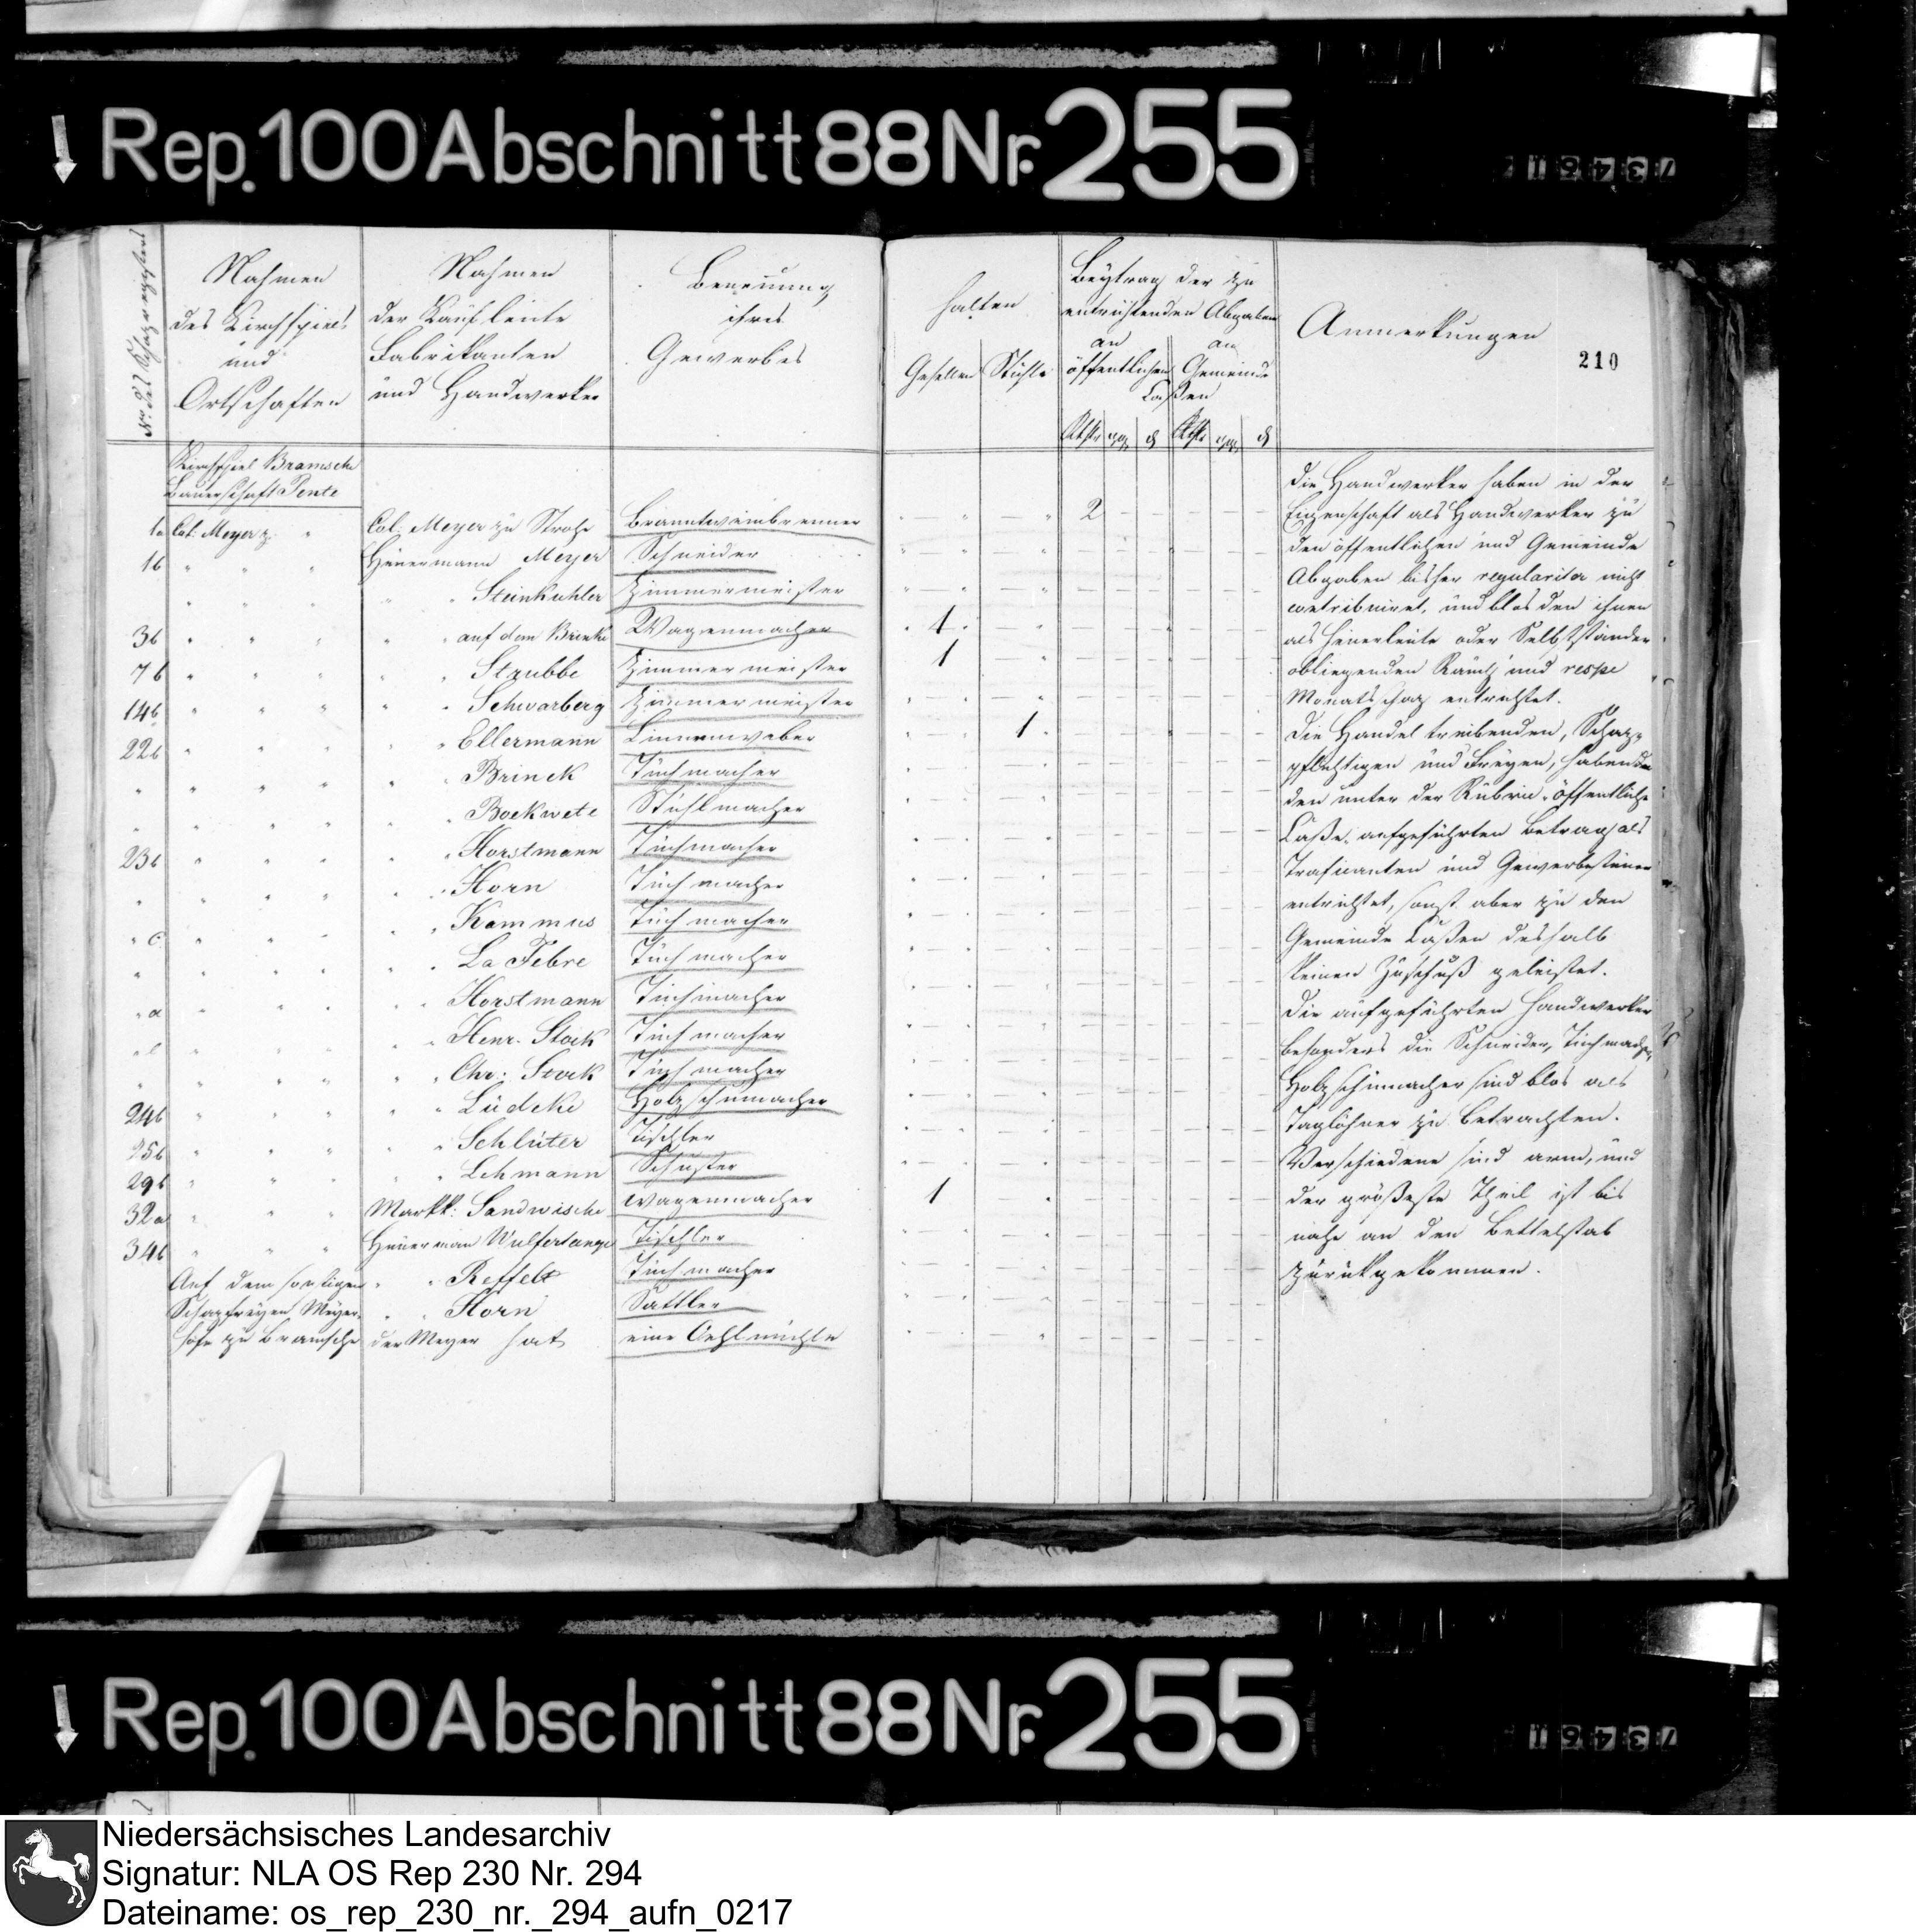 Rep. 100 Abschnitt 88 Nr. 255
Nro des Schazregisters
Nahmen
des Kirchspiels
und
Ortschaften
Nahmen
der Kaufleute
Fabrikanten
und Handwerker
Benennung
ihres
Gewerbes
halten
Gesellen Stühle
Beytrag der zu
entrichtenden Abgaben
an an
öffentlichen Gemeinde
Cassen
Rthlr ggr d Rthlr ggr d
Anmerkungen
210
Kirchspiel Bramsche
Bauerschaft Pente
1a Col. Meyer z. " Col. Meyer zu Strohe Branntweinbrenner " " 2
1b " " " Heuermann Meyer Schneider
" " " " " " Steinkuhler Zimmermeister
3b " " " " " auf dem Brinke Wagenmacher 1
7b " " " " " Strubbe Zimmermeister 1
14b " " " " " Schwarberg Zimmermeister
22b " " " " " Ellermann Linnenweber 1
" " " " " " Brinck Tuchmacher
" " " " " " Bockwete Stuhlmacher
23b " " " " " Horstmann Tuchmacher
" " " " " " Horn Tuchmacher
" c " " " " " Kammus Tuchmacher
" " " " " " La Febre Tuchmacher
" d " " " " " Horstmann Tuchmacher
" e " " " " " Henr. Stock Tuchmacher
" " " " " " Chr: Stock Tuchmacher
24b " " " " " Lüdeke Holzschumacher
25b " " " " " Schlüter Tischler
29b " " " " " Lehmann Schuster
32a " " " Markk: Sandwische Wagenmacher 1
34b " " " Heuerman Wulfertange Tischler
Auf dem sonstigen " " Reffelt Tuchmacher
Schazfreyen Meyer- " " Horn Sattler
hofe zu Bramsche der Meyer hat eine Oehlmühle
Die Handwerker haben in der
Eigenschaft als Handwerker zu
den öffentlichen und Gemeinde
Abgaben bisher regulariter nicht
contribuiret, und blos den ihnen
als Heuerleute oder Selbstständer
obliegenden Rauch und respe
Monatschaz entrichtet.
Die Handel treibenden, Schaz-
pflichtigen und Freyen, haben
den unter der Rubric öffentliche
Casse, aufgeführten Betrag als
Traficanten und Gewerbesteuer
entrichtet, sonst aber zu den
Gemeinde Cassen deshalb
keinen Zuschuß geleistet.
Die aufgeführten Handwerker
besonders die Schneider, Tuchmacher,
Holzschumacher sind blos als
Taglöhner zu betrachten.
Verschiedene sind arm, und
der größeste Theil ist bis
nahe an den Bettelstab
zurückgekommen.
Rep. 100 Abschnitt 88 Nr. 255
Niedersächsisches Landesarchiv
Signatur: NLA OS Rep 230 Nr. 294
Dateiname: os_rep_230_nr._294_aufn_0217